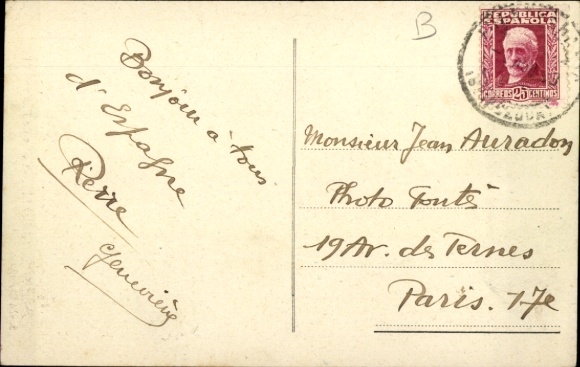 Bonjour à tous
d'Espagne
Pierre
Geneviève
B
REPUBLICA
ESPAÑOLA
CORREOS 25 CENTIMOS
Monsieur Jean Auradon
Photo Fonté
19 Av. des Ternes
Paris. 17e